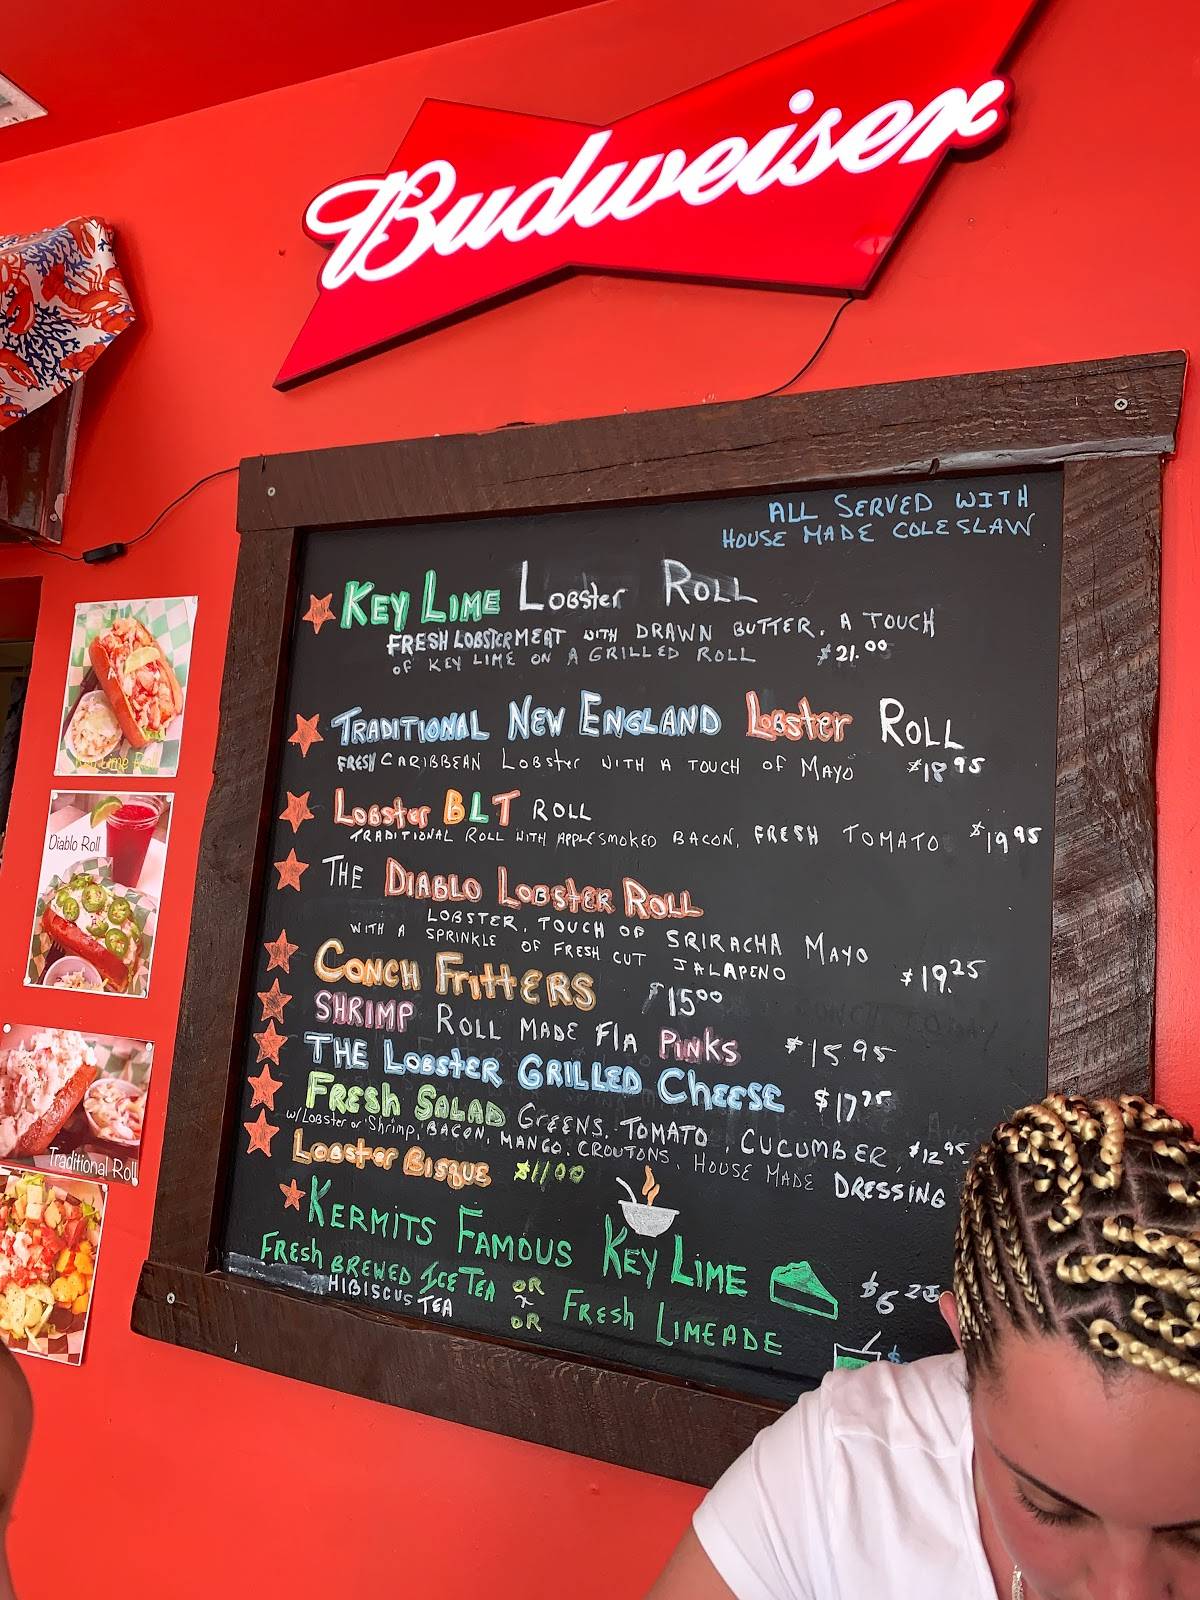 Budweiser
ALL SERVED WITH
HOUSE MADE COLESLAW
KEY LIME LOBSTER ROLL
FRESH LOBSTER MEAT WITH DRAWN BUTTER, A TOUCH
OF KEY LIME ON A GRILLED ROLL $21.00
TRADITIONAL NEW ENGLAND LOBSTER ROLL
FRESH CARIBBEAN LOBSTER WITH A TOUCH OF MAYO $18.95
LOBSTER BLT ROLL
TRADITIONAL ROLL WITH APPLE SMOKED BACON, FRESH TOMATO $19.95
THE DIABLO LOBSTER ROLL
LOBSTER, TOUCH OF SRIRACHA MAYO
WITH A SPRINKLE OF FRESH CUT JALAPENO $19.25
CONCH FRITTERS $15.00
SHRIMP ROLL MADE FLA PINKS $15.95
THE LOBSTER GRILLED CHEESE $17.25
FRESH SALAD GREENS, TOMATO, CUCUMBER, $12.95
w/ Lobster or Shrimp, BACON, MANGO, CROUTONS, HOUSE MADE DRESSING
LOBSTER BISQUE $11.00
KERMITS FAMOUS KEY LIME $6.25
FRESH BREWED ICE TEA OR FRESH LIMEADE
HIBISCUS TEA OR
$
Key Lime Roll
Diablo Roll
Traditional Roll